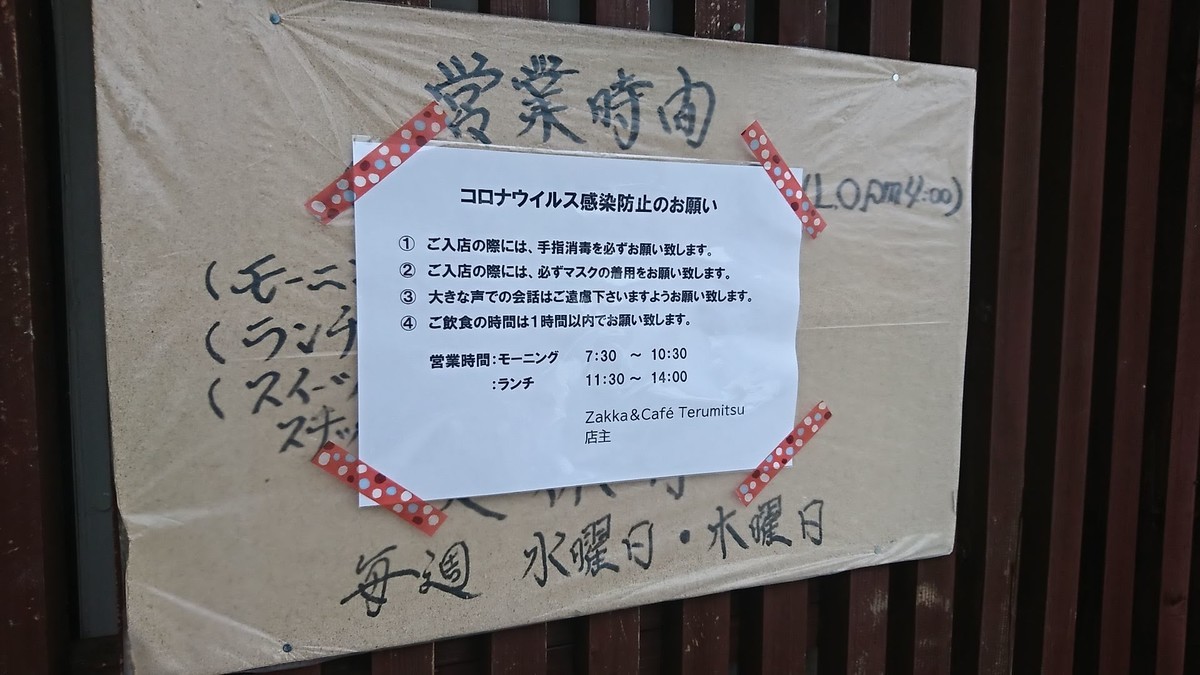 営業時間
(L.O pm4:00)
コロナウイルス感染防止のお願い
① ご入店の際には、手指消毒を必ずお願い致します。
② ご入店の際には、必ずマスクの着用をお願い致します。
③ 大きな声での会話はご遠慮下さいますようお願い致します。
④ ご飲食の時間は1時間以内でお願い致します。
営業時間:モーニング 7:30 ～ 10:30
:ランチ 11:30 ～ 14:00
Zakka&Café Terumitsu
店主
(モーニ
(ランチ
(スイーツ
スナッ
毎週 水曜日・木曜日